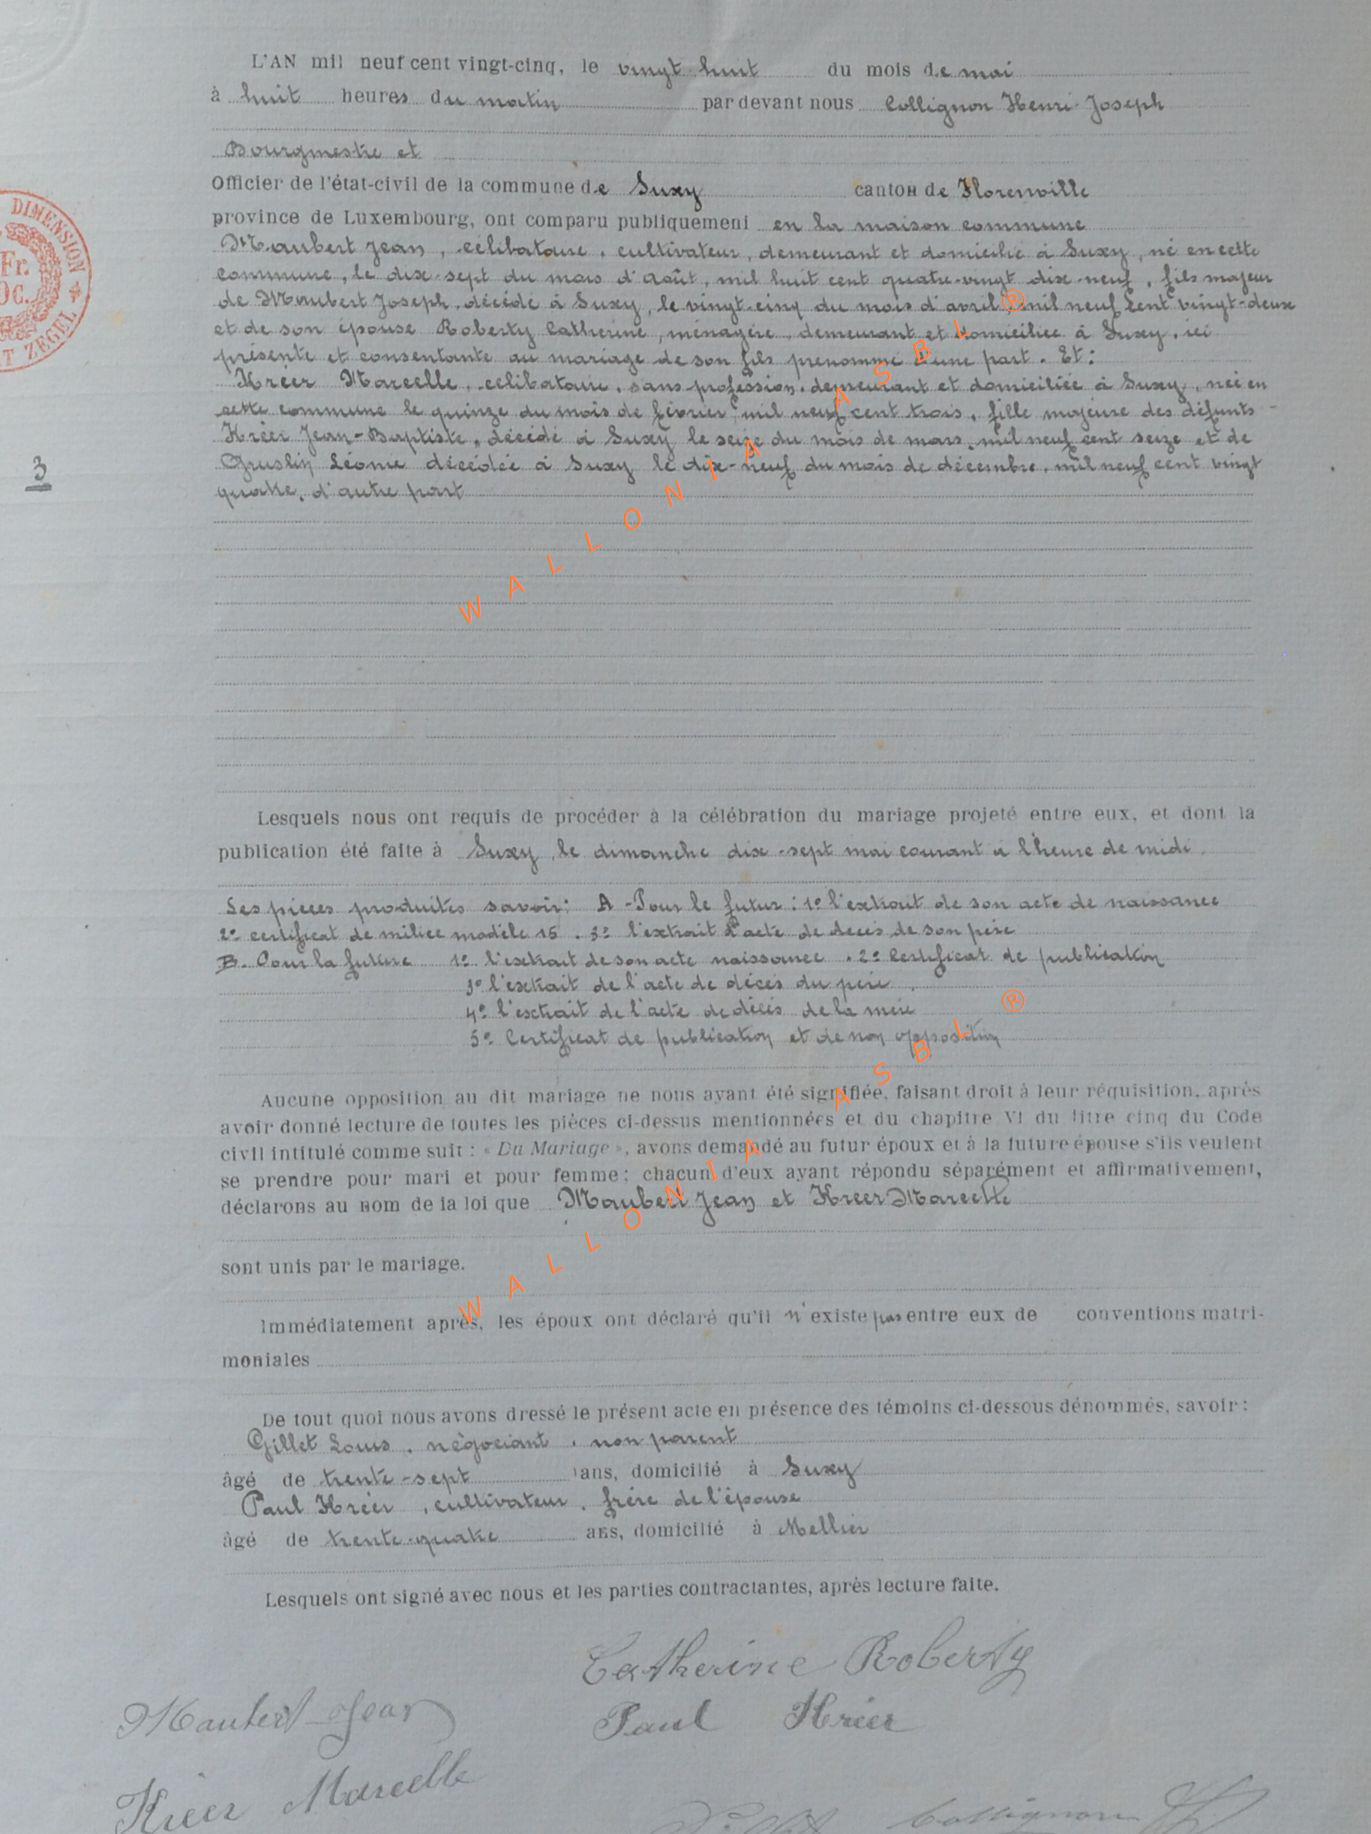 L'AN mil neuf cent vingt-cinq, le vingt-huit du mois de mai
à huit heures du matin par devant nous Collignon Henri Joseph
Bourgmestre et
Officier de l'état-civil de la commune de Suxy canton de Florenville
province de Luxembourg, ont comparu publiquement en la maison commune
Maubert Jean, célibataire, cultivateur, demeurant et domicilié à Suxy, né en cette
commune, le dix-sept du mois d'août, mil huit cent quatre-vingt dix-neuf, fils majeur
de Maubert Joseph, décédé à Suxy, le vingt-cinq du mois d'avril, mil neuf cent vingt-deux
et de son épouse Roberty Catherine, ménagère, demeurant et domiciliée à Suxy, ici
présente et consentante au mariage de son fils prénommé d'une part. Et:
Hréer Marcelle, célibataire, sans profession, demeurant et domiciliée à Suxy, née en
cette commune le quinze du mois de février mil neuf cent trois, fille majeure des défunts
Hréer Jean-Baptiste, décédé à Suxy le seize du mois de mars, mil neuf cent seize et de
Gruslin Léonie décédée à Suxy le dix-neuf du mois de décembre, mil neuf cent vingt
quatre, d'autre part
3
DIMENSION
Fr.
ZEGEL
Lesquels nous ont requis de procéder à la célébration du mariage projeté entre eux, et dont la
publication été faite à Suxy, le dimanche dix-sept mai courant à l'heure de midi.
Les pièces produites savoir: A - Pour le futur: 1º l'extrait de son acte de naissance
2º certificat de milice modèle 15. 3º l'extrait d'acte de décès de son père
B. Pour la future 1º l'extrait de son acte naissance. 2º Certificat de publication
3º l'extrait de l'acte de décès du père.
4º l'extrait de l'acte de décès de la mère
5º Certificat de publication et de non opposition
Aucune opposition au dit mariage ne nous ayant été signifiée, faisant droit à leur réquisition, après
avoir donné lecture de toutes les pièces ci-dessus mentionnées et du chapitre VI du titre cinq du Code
civil intitulé comme suit : « Du Mariage », avons demandé au futur époux et à la future épouse s'ils veulent
se prendre pour mari et pour femme ; chacun d'eux ayant répondu séparément et affirmativement,
déclarons au nom de la loi que Maubert Jean et Hréer Marcelle
sont unis par le mariage.
Immédiatement après, les époux ont déclaré qu'il n'existe pas entre eux de conventions matri-
moniales
De tout quoi nous avons dressé le présent acte en présence des témoins ci-dessous dénommés, savoir :
Gillet Louis, négociant, non parent
âgé de trente-sept ans, domicilié à Suxy
Paul Hréer, cultivateur, frère de l'épouse
âgé de trente-quatre ans, domicilié à Mellier
Lesquels ont signé avec nous et les parties contractantes, après lecture faite.
Catherine Roberty
Maubert Jean
Paul Hréer
Hréer Marcelle
Collignon H
WALLONIA ASBL ®
WALLONIA ASBL ®